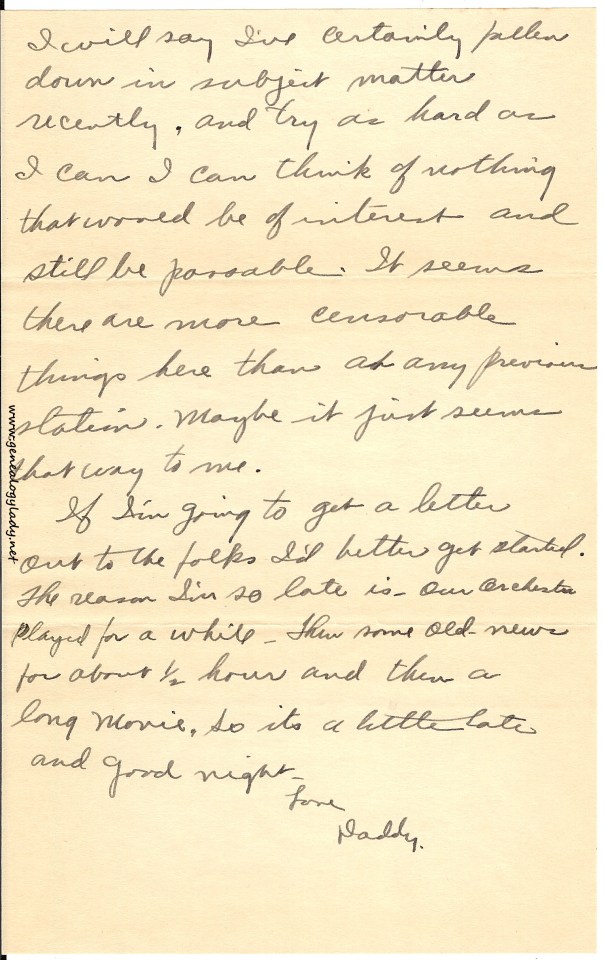 I will say I've certainly fallen
down in subject matter
recently, and try as hard as
I can I can think of nothing
that would be of interest and
still be passable. It seems
there are more censorable
things here than at any previous
station. Maybe it just seems
that way to me.
If I'm going to get a letter
out to the folks I'd better get started.
The reason I'm so late is - our Orchestra
played for a while - then some old-news
for about 1/2 hour and then a
long movie, So its a little late
and good night -
Love
Daddy.
www.genealogylady.net